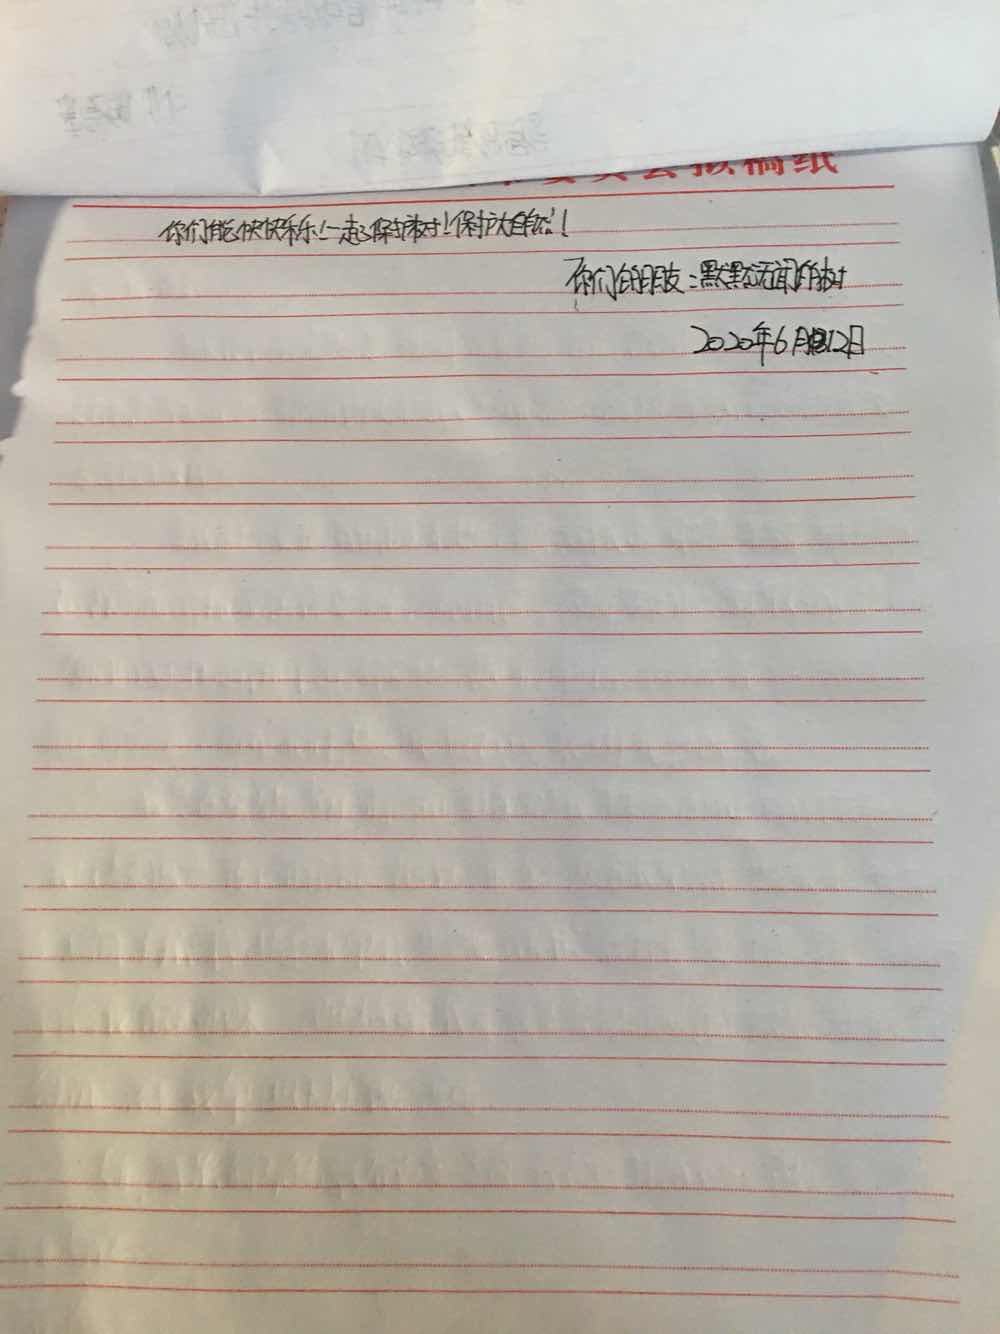 委员会拟稿纸
你们能快快乐乐!一起保护树!保护大自然!
你们的朋友:默默无闻的树
2020年6月12日